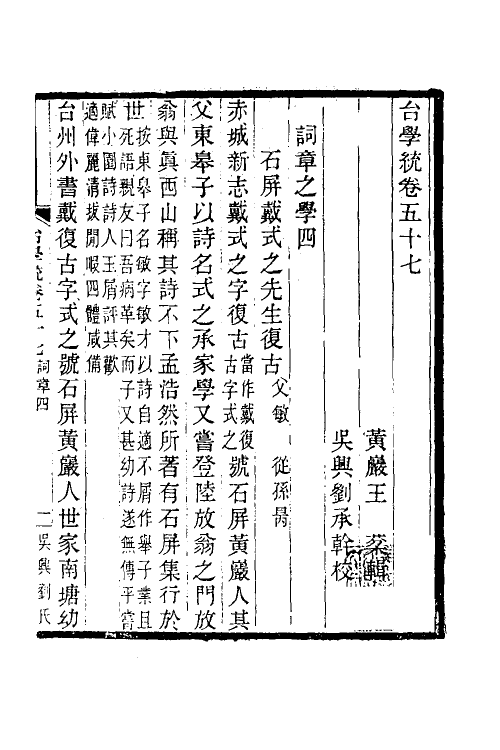 台學統卷五十七
黃巖王 棻輯
吳興劉承幹校
詞章之學四
石屏戴式之先生復古 父敏 從孫昺
赤城新志戴式之字復古當作戴復古字式之號石屏黃巖人其
父東皋子以詩名式之承家學又嘗登陸放翁之門放
翁與眞西山稱其詩不下孟浩然所著有石屏集行於
世按東皋子名敏字敏才以詩自適不屑作舉子業且死語親友曰吾病革矣而子又甚幼詩遂無傳乎嘗
賦小園詩詩人玉屑評其歡適偉麗清拔閒暇四體咸備
台州外書戴復古字式之號石屏黃巖人世家南塘幼
台學統卷五十七 詞章四
一 吳興劉氏